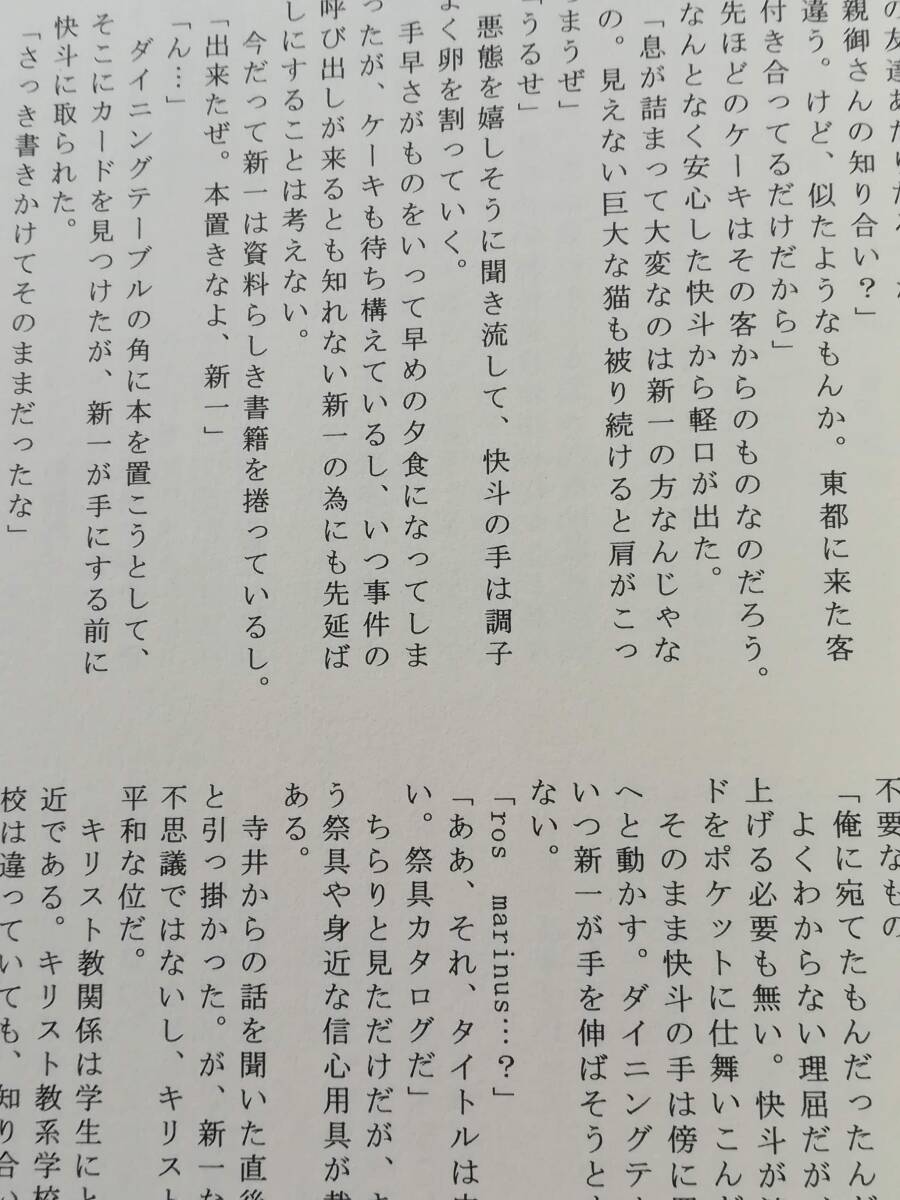 の友達あたりだろ
親御さんの知り合い？」
違う。けど、似たようなもんか。東都に来た客
付き合ってるだけだから」
先ほどのケーキはその客からのものなのだろう。
なんとなく安心した快斗から軽口が出た。
「息が詰まって大変なのは新一の方なんじゃな
の。見えない巨大な猫も被り続けると肩がこっ
まうぜ」
「うるせ」
悪態を嬉しそうに聞き流して、快斗の手は調子
よく卵を割っていく。
手早さがものをいって早めの夕食になってしま
ったが、ケーキも待ち構えているし、いつ事件の
呼び出しが来るとも知れない新一の為にも先延ば
しにすることは考えない。
今だって新一は資料らしき書籍を捲っているし。
「出来たぜ。本置きなよ、新一」
「ん…」
ダイニングテーブルの角に本を置こうとして、
そこにカードを見つけたが、新一が手にする前に
快斗に取られた。
「さっき書きかけてそのままだったな」
不要なもの
「俺に宛てたもんだったんだ
よくわからない理屈だが
上げる必要も無い。快斗が
ドをポケットに仕舞いこん
そのまま快斗の手は傍に
へと動かす。ダイニングテ
いつ新一が手を伸ばそうと
ない。
「ros marinus…？」
「ああ、それ、タイトルは
い。祭具カタログだ」
ちらりと見ただけだが、
う祭具や身近な信心用具が載
ある。
寺井からの話を聞いた直後
と引っ掛かった。が、新一な
不思議ではないし、キリスト
平和な位だ。
キリスト教関係は学生にと
近である。キリスト教系学校
校は違っていても、知り合い